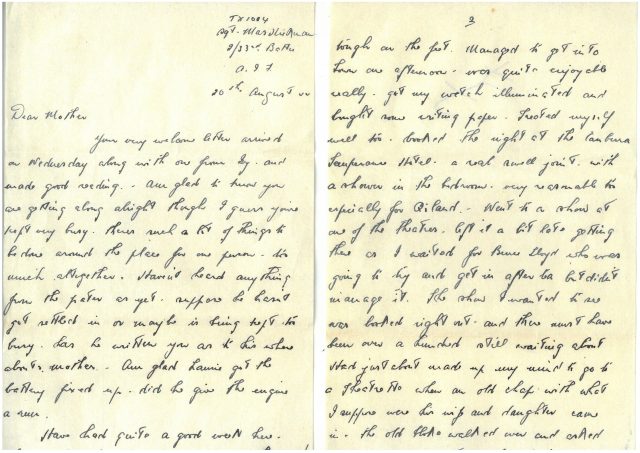 TX1004
Sgt.
2/23rd. Battn
A.I.F
20th August 44
Dear Mother
Your very welcome letter arrived
on Wednesday along with one from Ivy. and
made good reading. Am glad to know you
are getting along alright though I guess you're
kept very busy. theres such a lot of things to
be done around the place for one person. too
much altogether. Haven't heard anything
from the pater as yet. suppose he hasnt
got settled in or maybe is being kept too
busy. has he written you as to his where
abouts mother. Am glad the
battery fixed up. did he give the engine
a run.
Have had quite a good week here.
2
tough on the feet. Managed to get into
town one afternoon. was quite enjoyable
really. got my watch illuminated and
bought some writing paper. Treated myself
well too. booked the night at the Canberra
Temperance Hotel. a real swell joint. with
a shower in the bedroom. very reasonable too
especially for Q'sland. Went to a show at
one of the theatres. left it a bit late getting
there as I waited for Bruce Lloyd who was
going to try and get in after tea but didn't
manage it. The show I wanted to see
was booked right out. and there must have
been over a hundred still waiting about
Had just about made up my mind to go to
a when an old chap with what
I suppose were his wife and daughter came
in. the old bloke walked over and asked